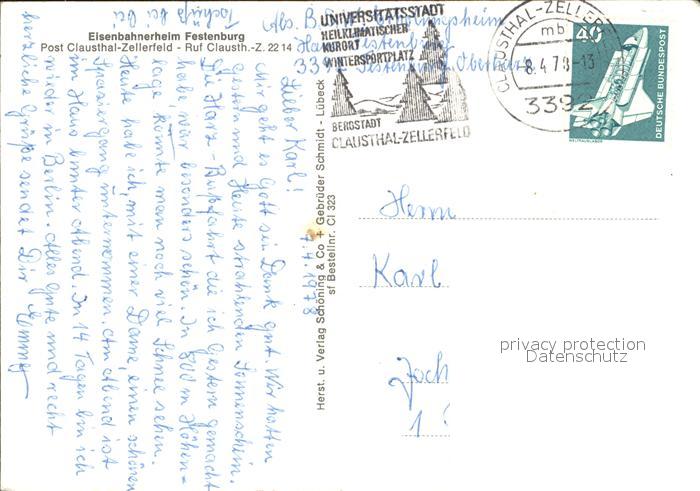 Eisenbahnerheim Festenburg
Post Clausthal-Zellerfeld - Ruf Clausth.-Z. 2214
Abs.
3392
UNIVERSITÄTSSTADT
HEILKLIMATISCHER
KURORT
WINTERSPORTPLATZ
BERGSTADT
CLAUSTHAL-ZELLERFELD
CLAUSTHAL-ZELLERF
mb
8.4.78-13
3392
40
DEUTSCHE BUNDESPOST
WELTRAUMLABOR
7.4.1978
Lieber Karl!
Mir geht es Gott sei Dank gut. Wir hatten
Gestern und Heute strahlenden Sonnenschein.
Die Harz-Busfahrt die ich Gestern gemacht
habe, war besonders schön. In 800 m Höhen-
lage, konnte man noch viel Schnee sehen.
Heute habe ich, mit einer Dame, einen schönen
Spaziergang unternommen. Am Abend ist
im Haus bunter Abend. In 14 Tagen bin ich
wieder in Berlin. Alles Gute und recht
herzliche Grüße sendet Dir
Tschüß bei bei
Herst. u. Verlag Schöning & Co + Gebrüder Schmidt - Lübeck
sf Bestellnr. Cl 323
Herrn
Karl
Joch
1
privacy protection
Datenschutz